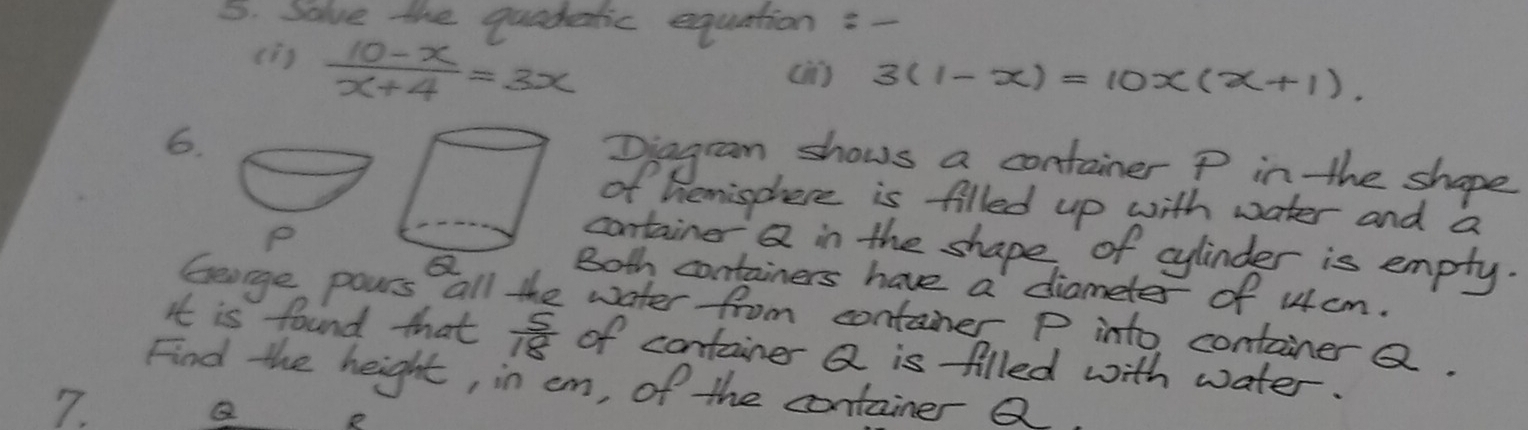 5. Solve the quadratic equation :-
(i) (10-x)/(x+4) = 3x (ii) 3(1-x) = 10x(x+1).
6. Diagram shows a container P in the shape
of hemisphere is filled up with water and a
container Q in the shape of cylinder is empty.
P Q Both containers have a diameter of 14cm.
George pours all the water from container P into container Q.
It is found that 5/18 of container Q is filled with water.
Find the height, in cm, of the container Q.
7. Q R